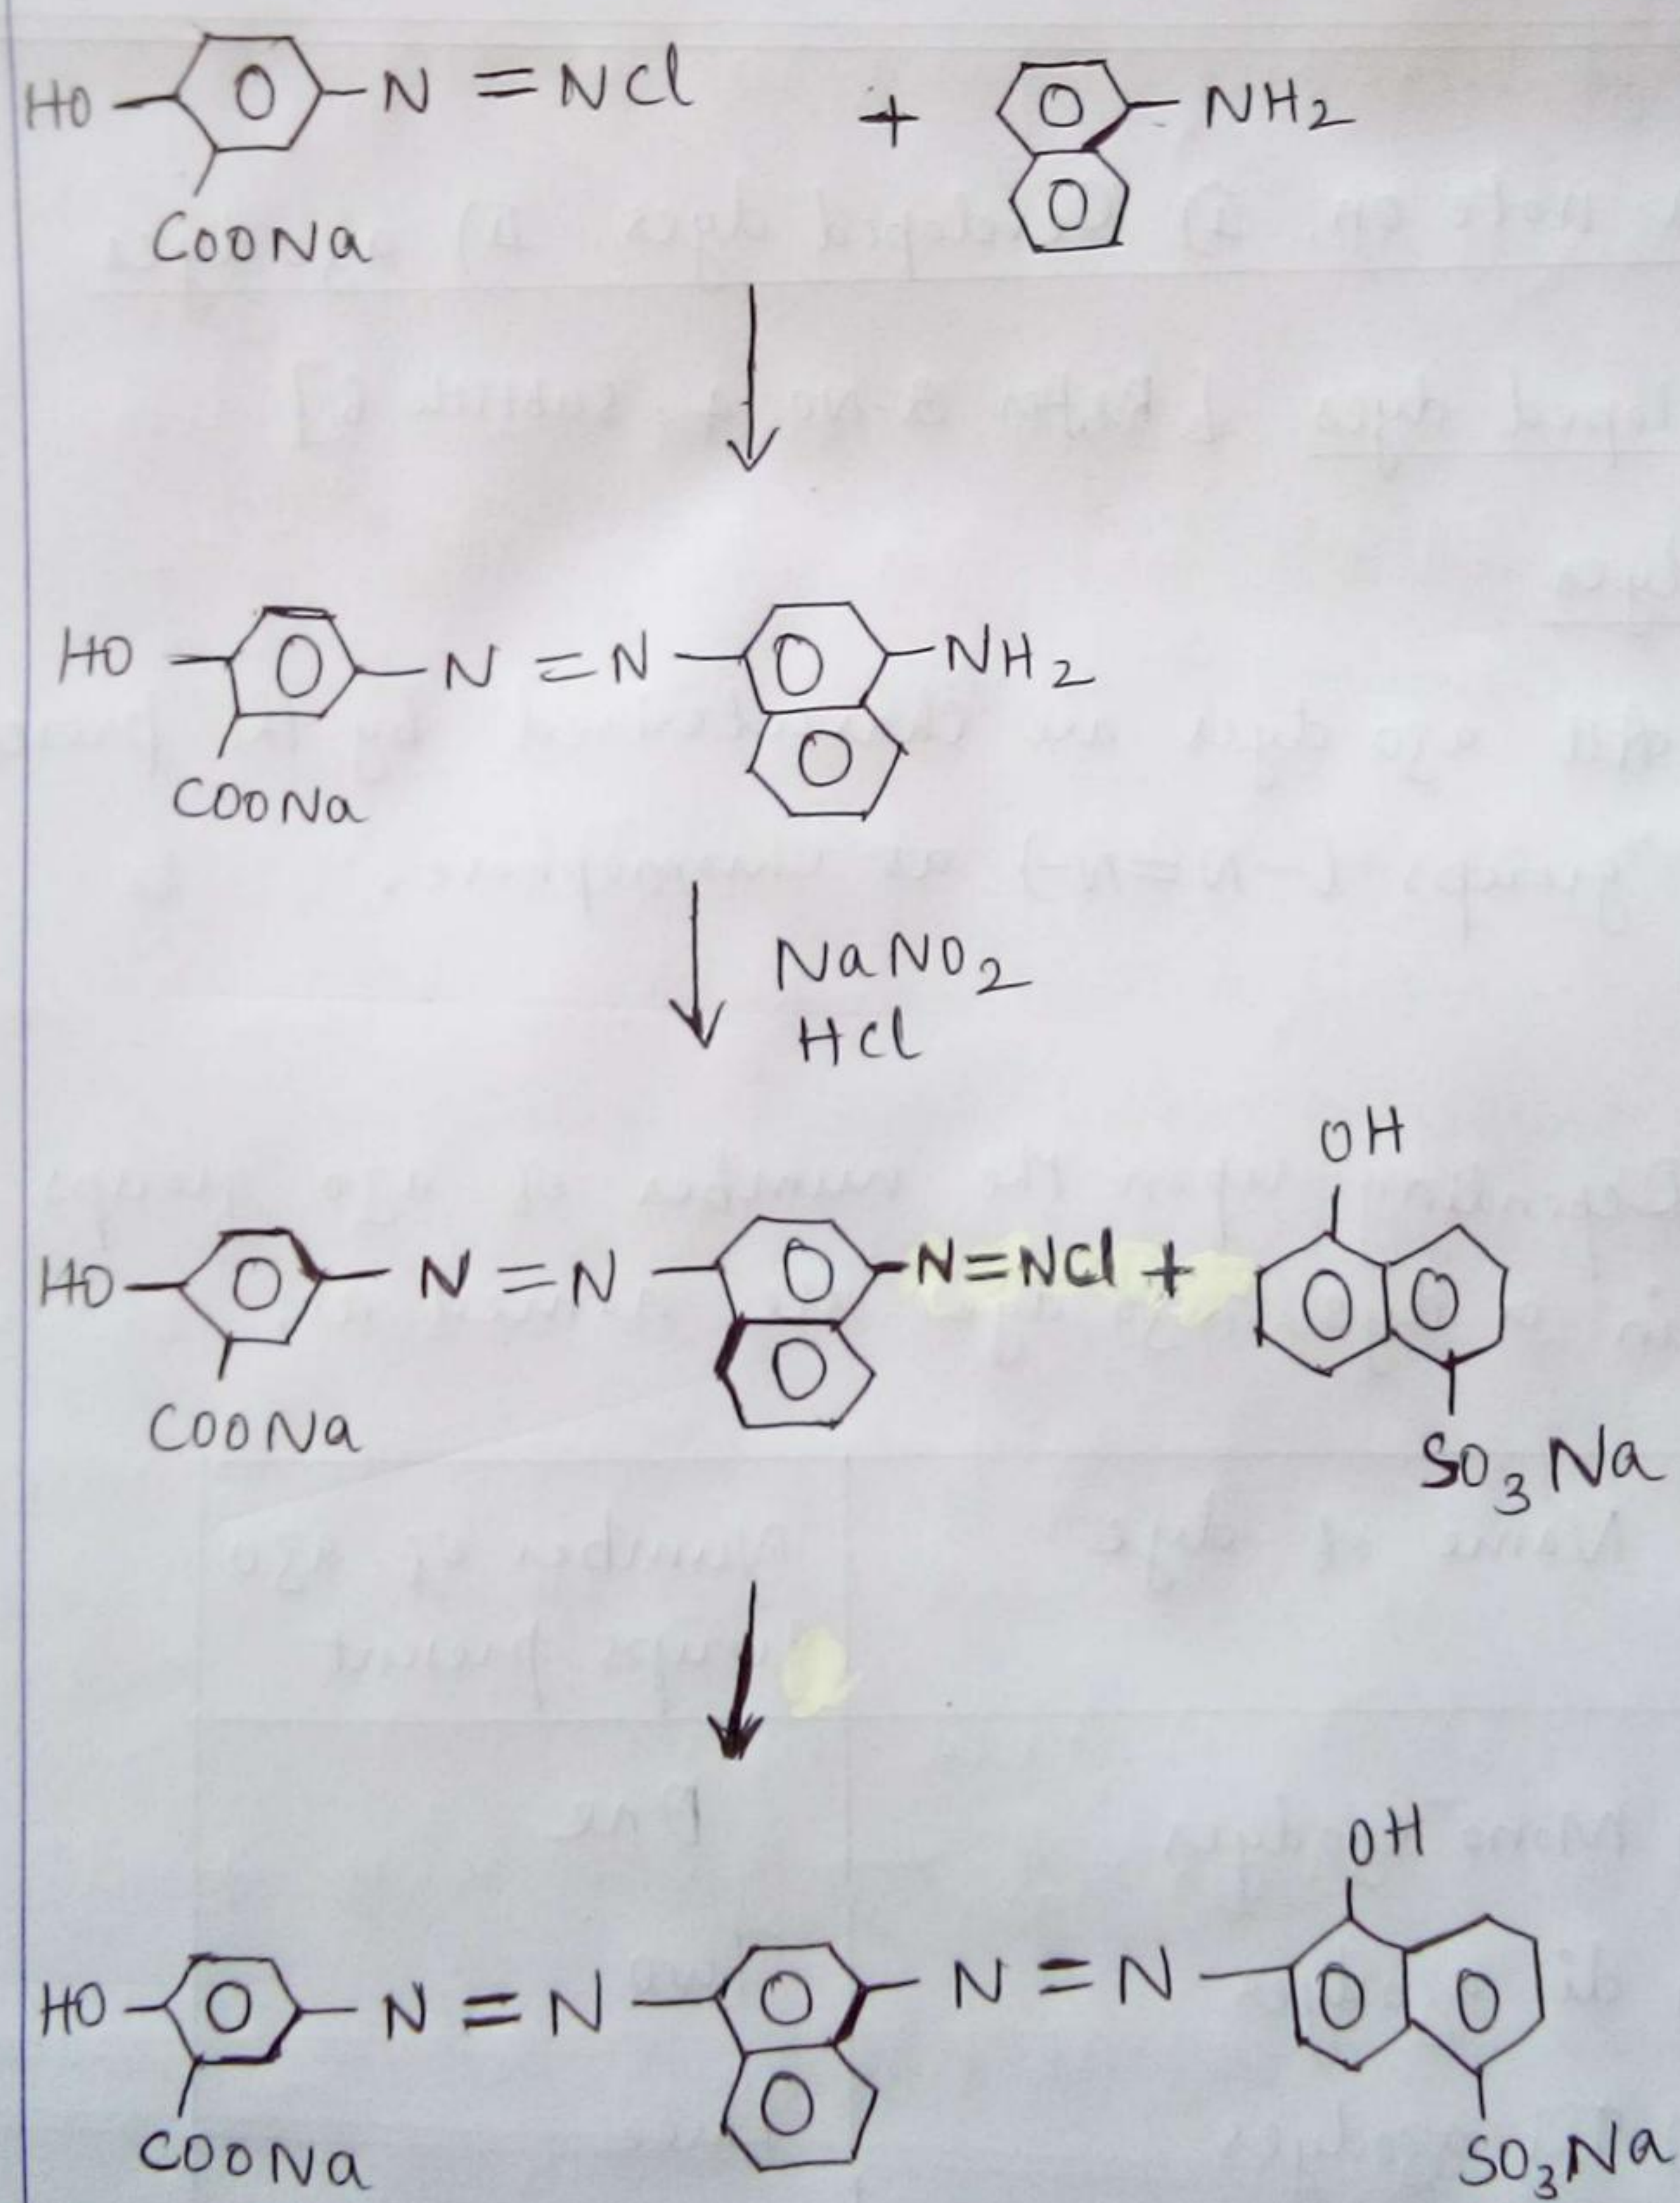 HO N = NCl + NH2
COONa
HO N = N NH2
COONa
NaNO2
HCl
OH
HO N = N N=NCl +
COONa
SO3Na
OH
HO N = N N = N
COONa
SO3Na